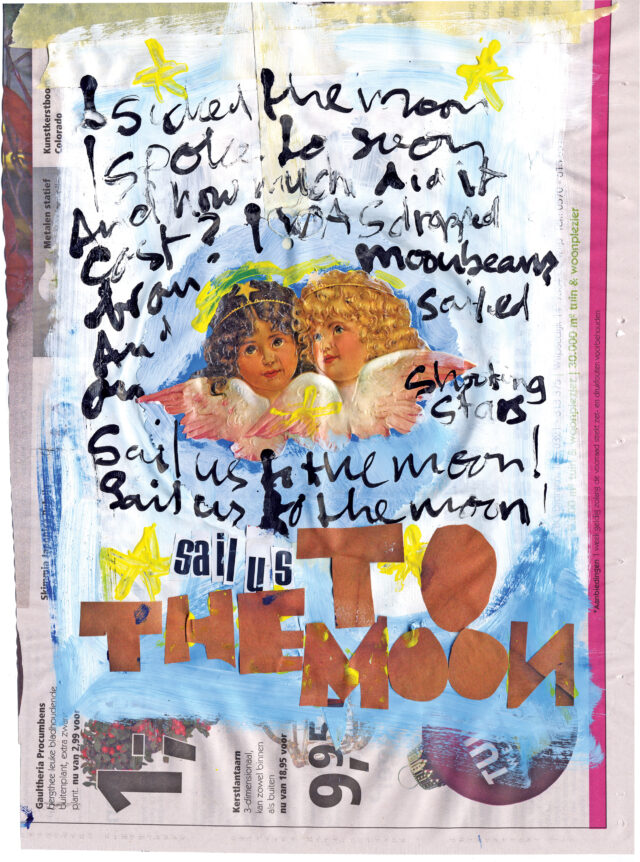 I sucked the moon
I spoke to soon
And how much did it
cost? I WAS dropped
from moonbeams
And sailed
on shooting
stars
Sail us to the moon!
Sail us to the moon!
sail us TO
THE MOON
Kunstkerstboo
Colorado
Metalen statief
30.000 m² tuin & woonplezier
Gaultheria Procumbens
Bergthee leuke bladhoudende
buitenplant, extra zwar
plant. nu van 2,99 voor
1,-
Kerstlantaarn
3-dimensionaal,
kan zowel binnen
als buiten
nu van 18,95 voor
9,95